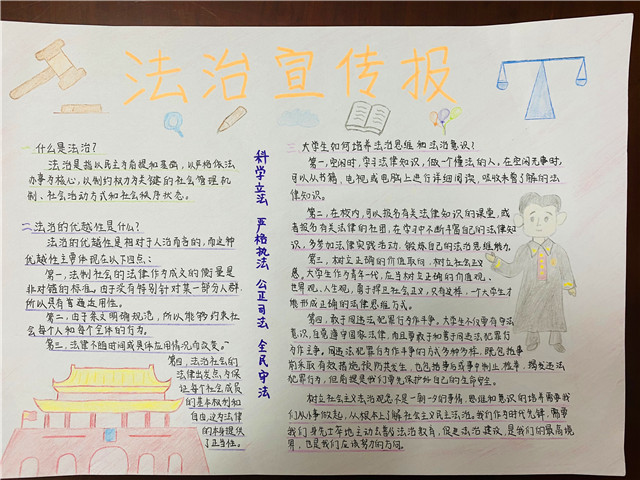 法治宣传报
一.什么是法治?
法治是指以民主为前提和基础，以严格依法
办事为核心，以制约权力为关键的社会管理机
制、社会活动方式和社会秩序状态。
二.法治的优越性是什么?
法治的优越性是相对于人治而言的，而这种
优越性主要体现在以下四点:
第一，法制社会的法律作为成文的衡量是
非对错的标准，由于没有特别针对某一部分人群，
所以具有普遍适用性。
第二，由于条文明确规范，所以能够约束社
会每个人和每个全体的行为。
第三，法律不随时间或具体应用情况而改变。
第四，法治社会的
法律出发点为保
证每个社会成员
的基本权利和
自由，这为法律
的本身提供
了正当性。
科学立法 严格执法 公正司法 全民守法
三.大学生如何培养法治思维和法治意识?
第一，空闲时，学习法律知识，做一个懂法的人，在空闲无事时，
可以从书籍，电视或电脑上进行详细阅读，吸收未曾了解的法
律知识。
第二，在校内，可以报名有关法律知识的课堂，或
者报名有关法律的社团，在学习中不断丰富自己的法律知
识，多参加法律实践活动，锻炼自己的法治思维能力。
第三，树立正确的价值取向，树立社会正义
感，大学生作为青年一代，应当树立正确的价值观，
世界观，人生观，勇于捍卫社会正义，只有这样，一个大学生才
能形成正确的法律思维方式。
第四，敢于同违法犯罪行为作斗争。大学生不仅要有守法
意识，自觉遵守国家法律，而且要敢于和善于同违法犯罪行
为作斗争。同违法犯罪行为作斗争的方式多种多样，既包括事
前采取有效措施，预防其发生，也包括事后或事中制止，检举，揭发违法
犯罪行为，但前提是我们要先保护好自己的生命安全。
树立社会主义法治观念不是一朝一夕的事情，思维和意识的培养需要我
们从小事做起，从根本上了解社会主义民主法治。我们作为时代先锋，需要
我们身先士卒地主动去普及法治教育，促进法治建设，是我们的最高境
界，也是我们应该努力的方向。